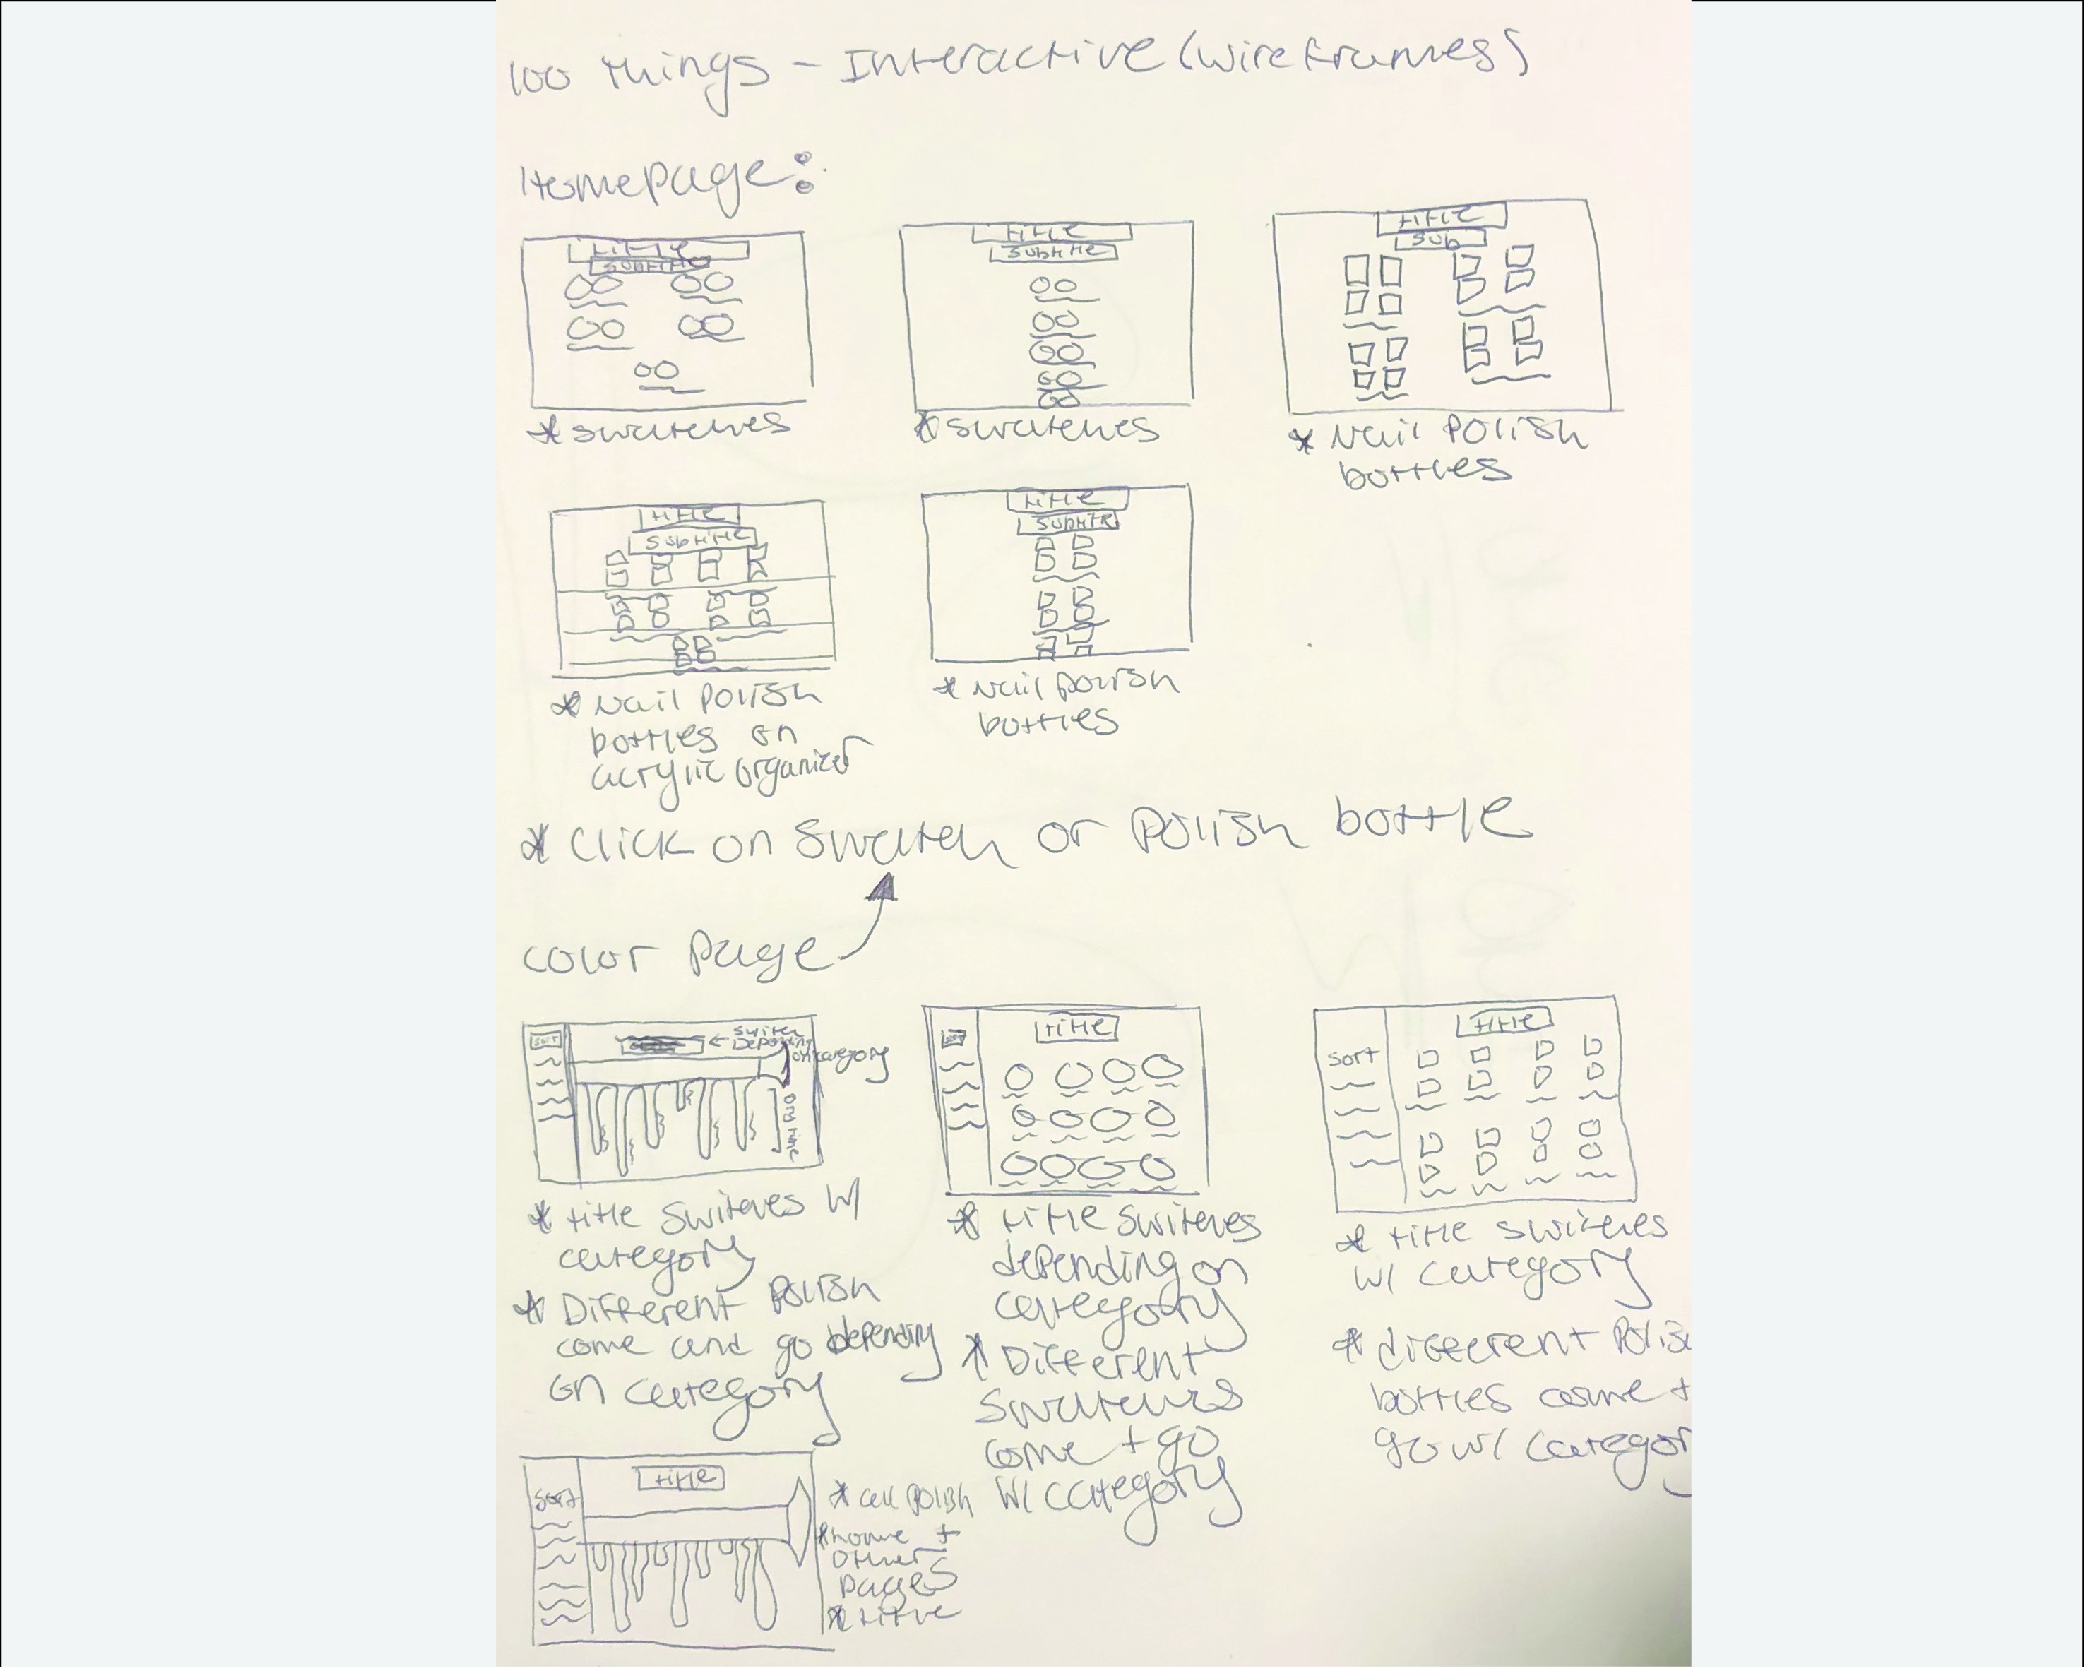 100 Things - Interactive (wireframes)
Homepage:
title
subtitle
* swatches
title
subtitle
* swatches
title
sub
* Nail Polish
bottles
title
subtitle
* Nail Polish
bottles on
acrylic organizer
title
subtitle
* Nail polish
bottles
* Click on Swatch or Polish bottle
Color Page
sort
← switch
Depending
on category
* title switches w/
category
* Different Polish
come and go depending
on category
title
* title switches
depending on
category
* Different
swatches
come + go
w/ category
title
sort
* title switches
w/ category
* different Polis
bottles come +
go w/ categor
title
sort
* all polish
* home +
other
pages
* title